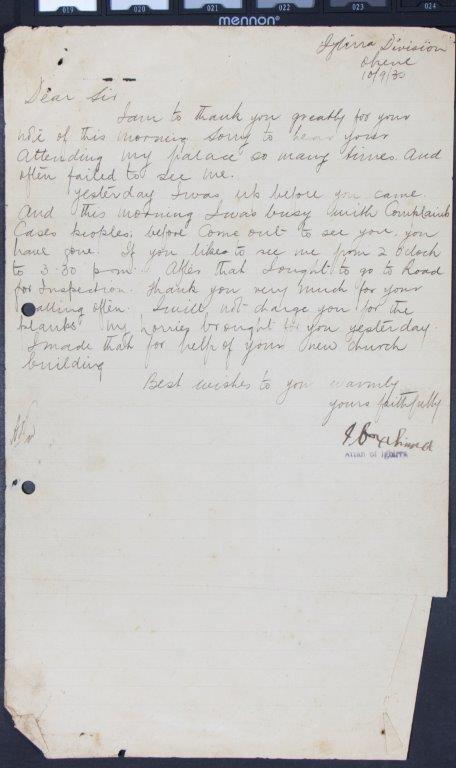 019 020 021 022 023 024
mennon
Igbirra Division
Okene
10/9/35
Dear Sir
I am to thank you greatly for your
note of this morning Sorry to hear your
Attending my palace so many times And
often failed to see me.
yesterday I was up before you came.
And this morning I was busy with Complaints
Cases peoples, before Come out to see you, you
have gone. If you likes to see me from 2 oclock
to 3-30 p.m. After that I ought to go to Road
for Inspection. Thank you very much for your
calling often. I will not charge you for the
planks my lorries brought to you yesterday.
I made that for help of your new church
building
Best wishes to you warmly
yours faithfully
Ibrahima
Attah of Igbirra